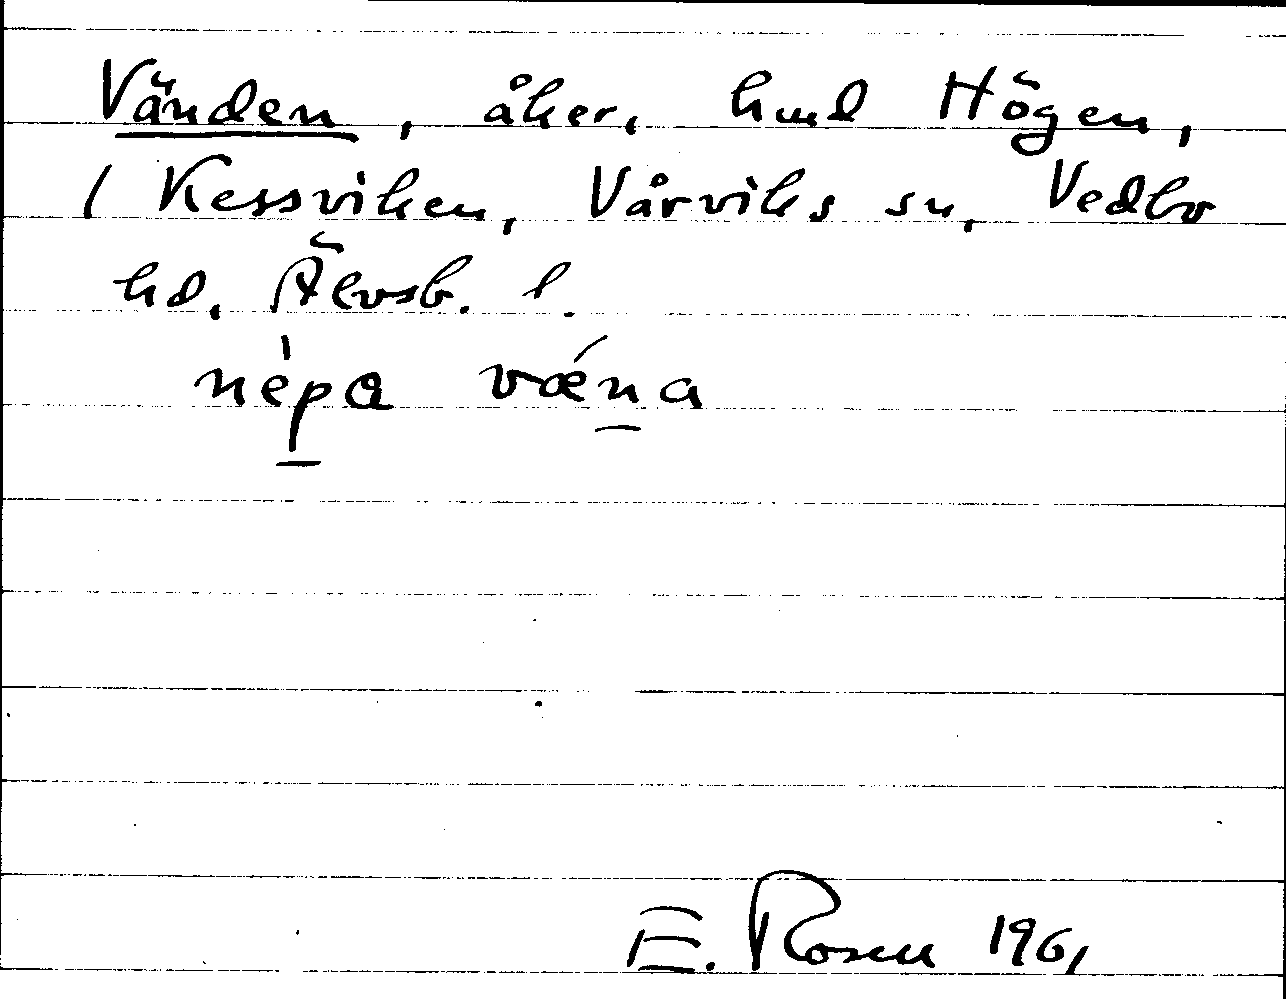 Vänden, åker, hmd Högen,
/ Kessviken, Vårviks sn, Vedbo
hd, Älvsb. l.
nèpa vǽna
E. Rosen 1961